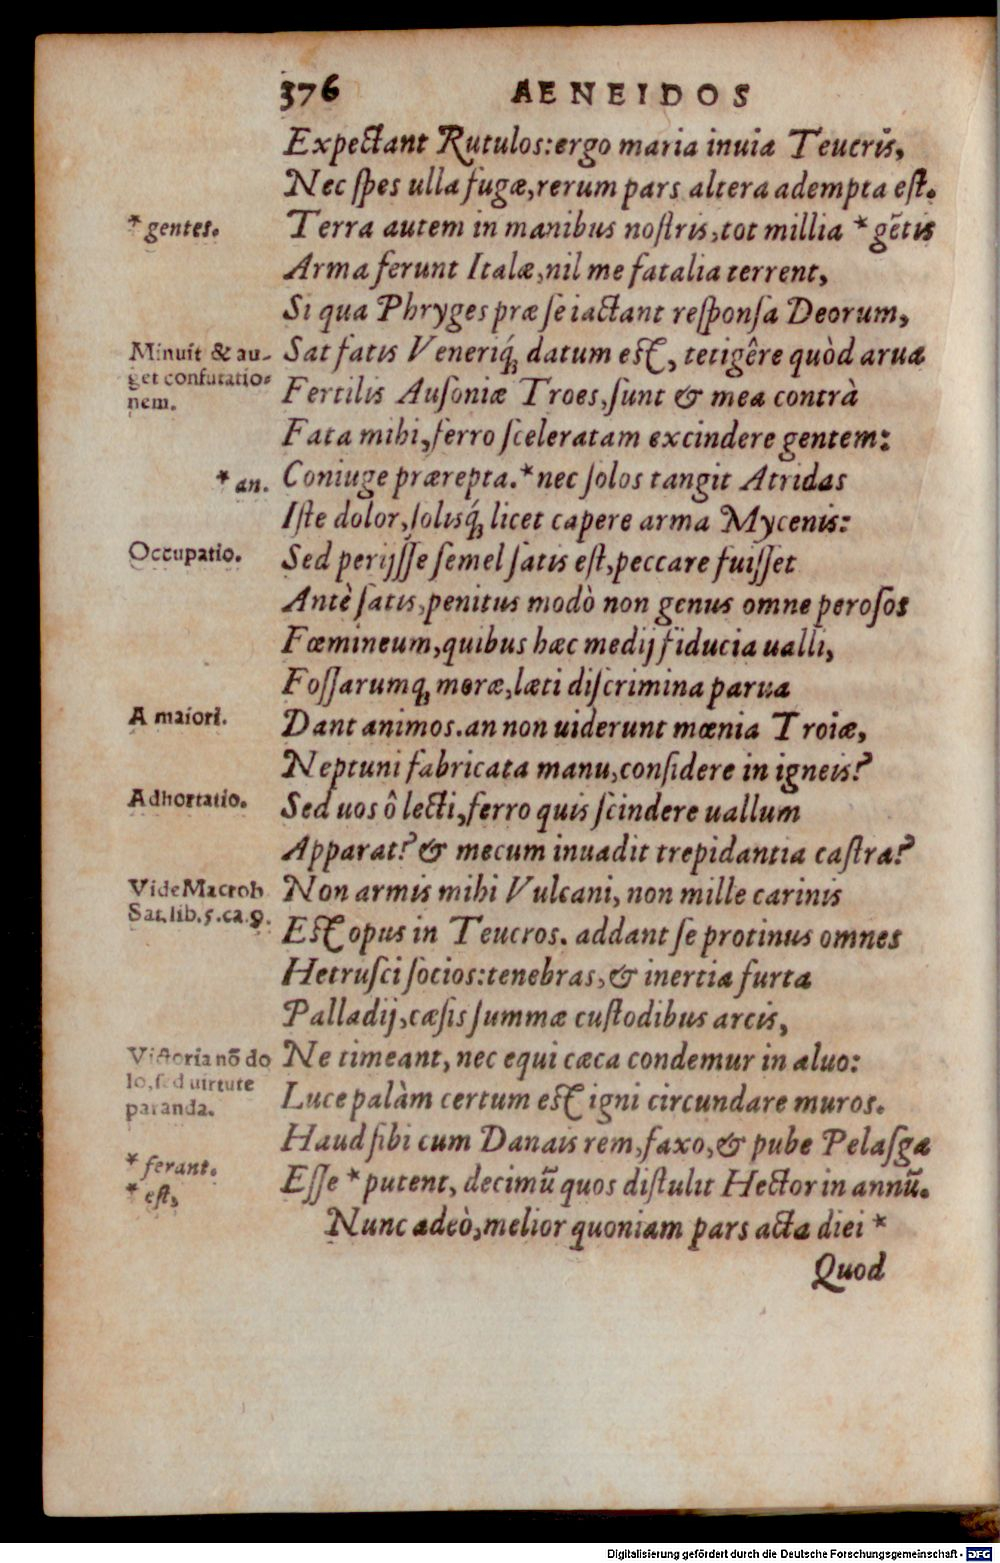 376 AENEIDOS
Expectant Rutulos: ergo maria inuia Teucris,
Nec spes ulla fugæ, rerum pars altera adempta est.
*gentes.
Terra autem in manibus nostris, tot millia *gẽtis
Arma ferunt Italæ, nil me fatalia terrent,
Si qua Phryges præ se iactant responsa Deorum,
Minuit & au-
get confutatio-
nem.
Sat fatis Veneriq́; datum est, tetigêre quòd arua
Fertilis Ausoniæ Troes, sunt & mea contrà
Fata mihi, ferro sceleratam excindere gentem:
*an.
Coniuge prærepta. *nec solos tangit Atridas
Iste dolor, solisq́; licet capere arma Mycenis:
Occupatio.
Sed perijsse semel satis est, peccare fuisset
Antè satis, penitus modò non genus omne perosos
Fœmineum, quibus hæc medij fiducia ualli,
Fossarumq; moræ, læti discrimina parua
A maiori.
Dant animos. an non uiderunt mœnia Troiæ,
Neptuni fabricata manu, considere in igneis?
Adhortatio.
Sed uos ô lecti, ferro quis scindere uallum
Apparat? & mecum inuadit trepidantia castra?
Vide Macrob
Sat. lib. 5. ca. 9.
Non armis mihi Vulcani, non mille carinis
Est opus in Teucros. addant se protinus omnes
Hetrusci socios: tenebras, & inertia furta
Palladij, cæsis summæ custodibus arcis,
Victoria nõ do
lo, sed uirtute
paranda.
Ne timeant, nec equi cæca condemur in aluo:
Luce palàm certum est igni circundare muros.
Haud sibi cum Danais rem, faxo, & pube Pelasga
*ferant.
*est,
Esse *putent, decimũ quos distulit Hector in annũ.
Nunc adeò, melior quoniam pars acta diei *
Quod
Digitalisierung gefördert durch die Deutsche Forschungsgemeinschaft - DFG